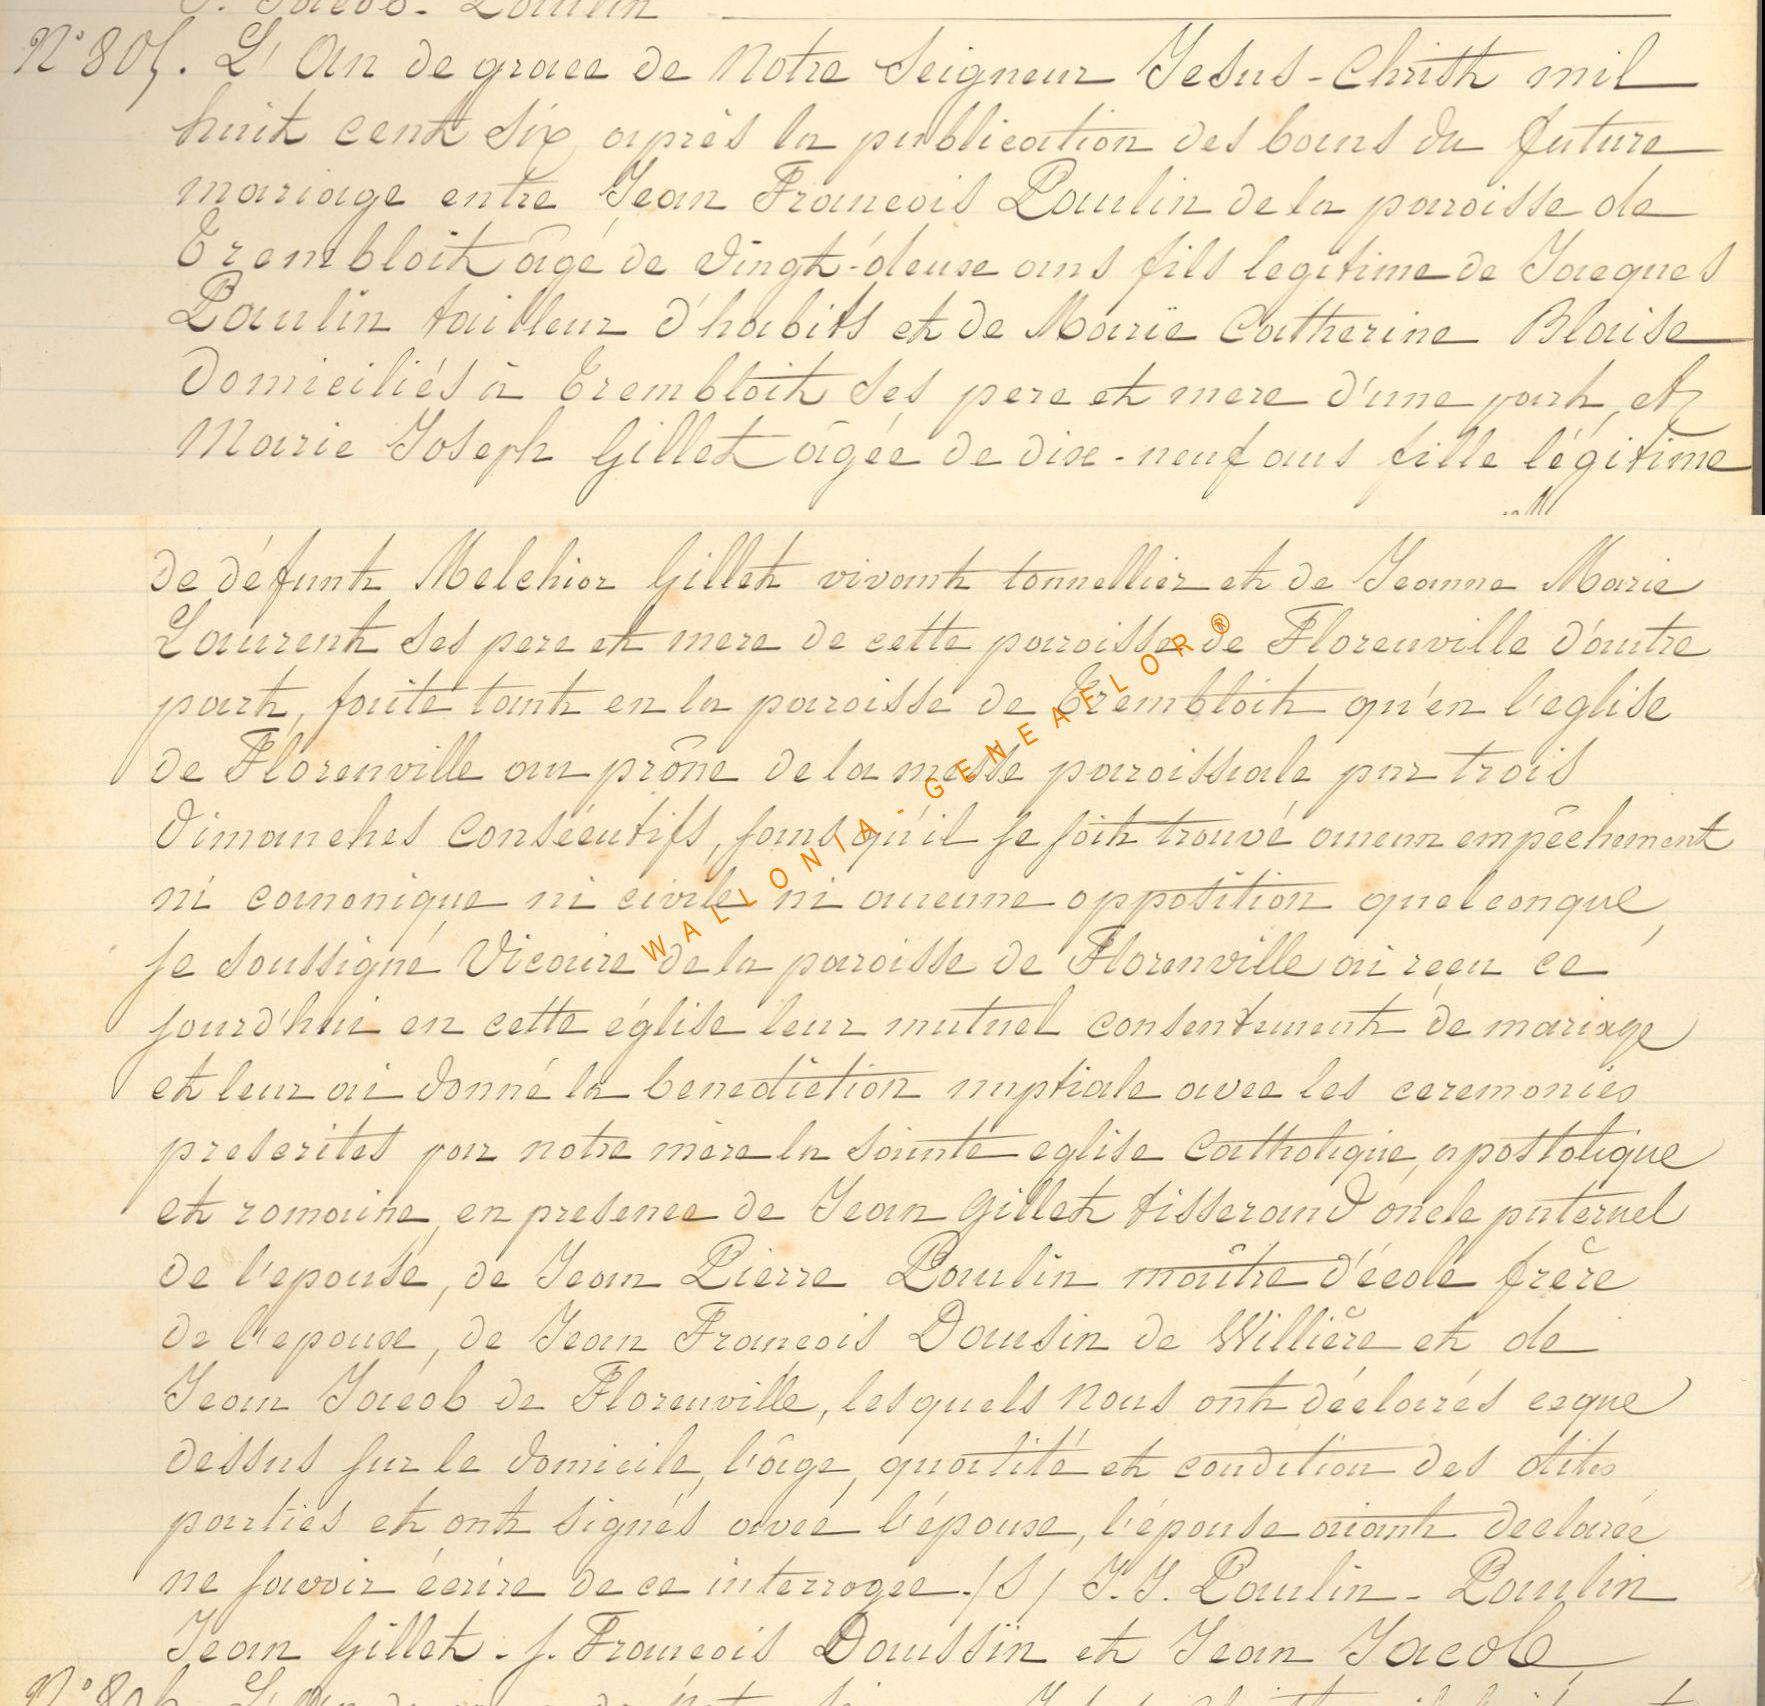 J. Jacob - Paulin
N° 805. L'An de grace de Notre Seigneur Jesus-Christ mil
huit cent six après la publication des bans du future
mariage entre Jean Francois Paulin de la paroisse de
Trembloit âgé de vingt-deux ans fils legitime de Jacques
Paulin tailleur d'habits et de Marie Catherine Blaise
domiciliés à Trembloit ses pere et mere d'une part, et
Marie Joseph Gillet âgée de dix-neuf ans fille légitime
de défunt Melchior Gillet vivant tonnellier et de Jeanne Marie
Laurent ses pere et mere de cette paroisse de Florenville d'autre
part, faite tant en la paroisse de Trembloit qu'en l'eglise
de Florenville au prône de la messe paroissiale par trois
dimanches consécutifs, sans qu'il se soit trouvé aucun empêchement
ni canonique ni civile ni aucune opposition quelconque,
je soussigné Vicaire de la paroisse de Florenville ai reçu ce
jourd'hui en cette église leur mutuel consentement de mariage
et leur ai donné la benediction nuptiale avec les ceremonies
prescrites par notre mère la sainte eglise Catholique, apostolique
et romaine, en presence de Jean Gillet tisserand oncle paternel
de l'epouse, de Jean Pierre Paulin maître d'école frère
de l'epoux, de Jean Francois Dausin de Willière et de
Jean Jacob de Florenville, lesquels nous ont déclarés ce que
dessus sur le domicile, l'âge, qualité et condition des dites
parties et ont signés avec l'époux, l'épouse aiant declarée
ne savoir écrire de ce interrogee. /S/ J. J. Paulin - Paulin
Jean Gillet - J. Francois Daussin et Jean Jacob
WALLONIA-GENEAFLOR®